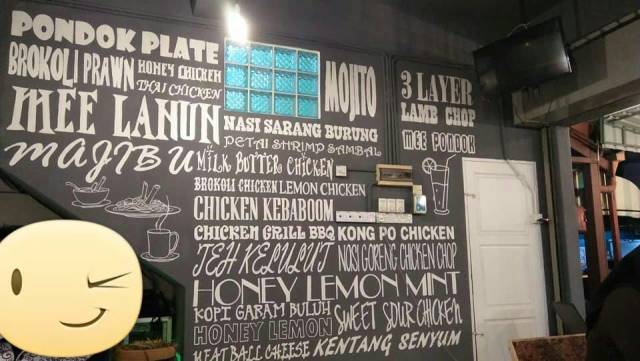 PONDOK PLATE
BROKOLI PRAWN
HONEY CHICKEN
THAI CHICKEN
MEE LANUN
MAJIBU
MOJITO
NASI SARANG BURUNG
PETAI SHRIMP SAMBAL
MILK BUTTER CHICKEN
BROKOLI CHICKEN LEMON CHICKEN
CHICKEN KEBABOOM
CHICKEN GRILL BBQ KONG PO CHICKEN
TEH KELULUT NASI GORENG CHICKEN CHOP
HONEY LEMON MINT
KOPI GARAM BULUH
HONEY LEMON
SWEET SOUR CHICKEN
MEAT BALL CHEESE KENTANG SENYUM
3 LAYER
LAMB CHOP
MEE PONDOK